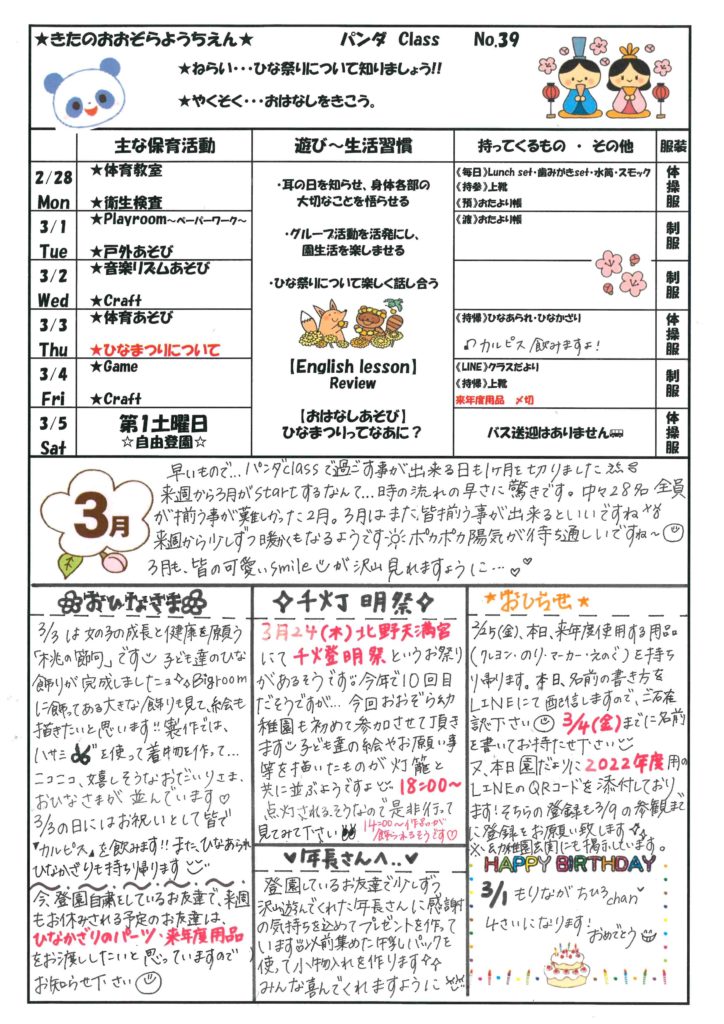 ★きたのおおぞらようちえん★ パンダ Class No.39
★ねらい・・・ひな祭りについて知りましょう!!
★やくそく・・・おはなしをきこう。
主な保育活動 遊び～生活習慣 持ってくるもの ・ その他 服装
2/28 Mon
★体育教室
★衛生検査
《毎日》Lunch set・歯みがきset・水筒・スモック
《持参》上靴
《預》おたより帳
体操服
3/1 Tue
★Playroom～ペーパーワーク～
★戸外あそび
《渡》おたより帳
制服
3/2 Wed
★音楽リズムあそび
★Craft
制服
3/3 Thu
★体育あそび
★ひなまつりについて
《持帰》ひなあられ・ひなかざり
カルピス飲みますよ!
体操服
3/4 Fri
★Game
★Craft
《LINE》クラスだより
《持帰》上靴
来年度用品 〆切
制服
3/5 Sat
第1土曜日
☆自由登園☆
バス送迎はありません
体操服
・耳の日を知らせ、身体各部の
大切なことを悟らせる
・グループ活動を活発にし、
園生活を楽しませる
・ひな祭りについて楽しく話し合う
【English lesson】
Review
【おはなしあそび】
ひなまつりってなあに?
3月
早いもので…パンダclassで過ごす事が出来る日も1ヶ月を切りました
来週から3月がstartするなんて…時の流れの早さに驚きです。中々28名全員
が揃う事が難しかった2月。3月はまた皆揃う事が出来るといいですね
来週から少しずつ暖かくもなるようです ポカポカ陽気が待ち通しいですね～
3月も、皆の可愛いsmileが沢山見れますように…
おひなさま
3/3は女の子の成長と健康を願う
「桃の節句」です 子ども達のひな
飾りが完成しましたョ Bigroom
に飾ってある大きな飾りも見て、絵も
描きたいと思います!! 製作では、
ハサミを使って着物を作って…
ニコニコ、嬉しそうなおだいりさま、
おひなさまが並んでいます♡
3/3の日にはお祝いとして皆で
"カルピス"を飲みます!! また、ひなあられ
ひなかざりも持ち帰ります
今、登園自粛をしているお友達で、来週
もお休みされる予定のお友達は、
ひなかざりのパーツ・来年度用品
をお渡ししたいと思っていますので
お知らせ下さい
✧千灯明祭✧
3月24(木)北野天満宮
にて千燈明祭というお祭り
があるそうです 今年で10回目
だそうですが… 今回おおぞら幼
稚園も初めて参加させて頂き
ます 子ども達の絵やお願い事
等を描いたものが灯籠と
共に並ぶようですよ 18:00～
点灯されるそうなので是非行って
見てみて下さい
14:00～作品が
飾られるそうです♡
♥年長さんへ..♥
登園しているお友達で少しずつ
沢山遊んでくれた年長さんに感謝
の気持ちを込めてプレゼントを作って
います 以前集めた牛乳パックを
使って小物入れを作ります
みんな喜んでくれますように
★おしらせ★
2/25(金)、本日、来年度使用する用品
(クレヨン・のり・マーカー・えのぐ)を持ち
帰ります。本日、名前の書き方を
LINEにて配信しますので、ご確
認下さい 3/4(金)までに名前
を書いてお持たせ下さい
又、本日園だよりに2022年度用の
LINEのQRコードを添付しており
ます! そちらの登録を3/9の参観まで
に登録をお願い致します
※幼稚園玄関にも掲示しています。
HAPPY BIRTHDAY
3/1 もりなが ちひろchan
4さいになります!
おめでとう